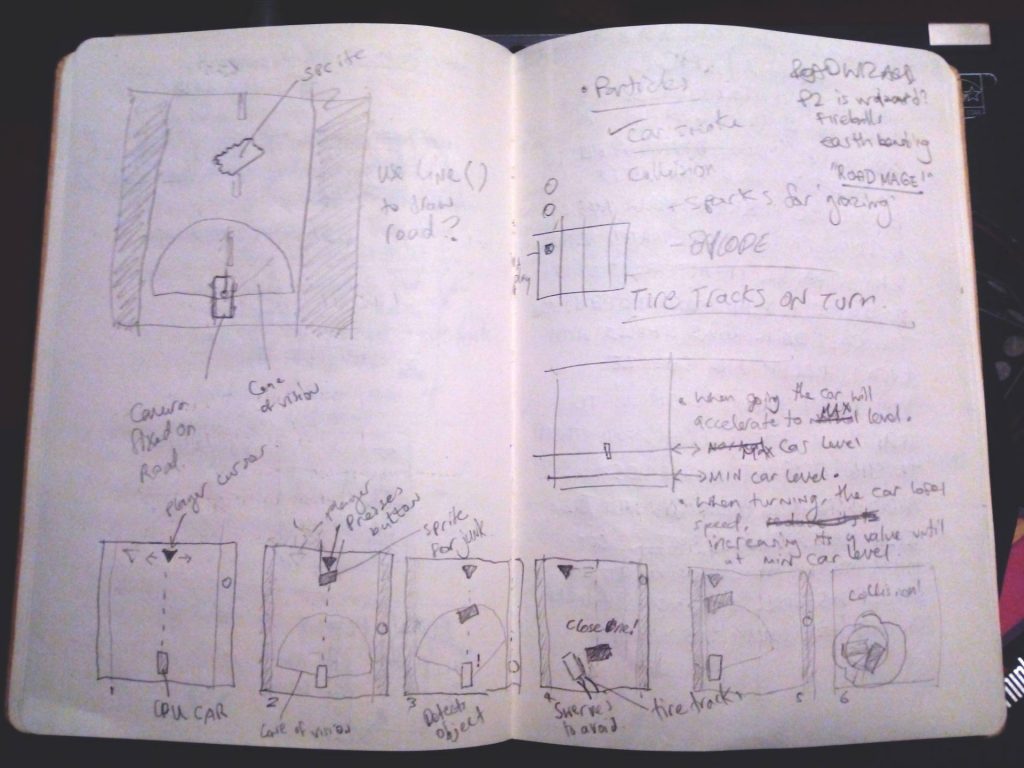 sprite
use line()
to draw
road?
Cone
of vision
Camera
fixed on
Road.
player cursor
player
Presses
button
sprite
for junk
1
CPU CAR
2
Cone of vision
3
Detects
object
!
• Particles
✓ car smoke
collision
- sparks for 'grazing'
Tire Tracks on Turn.
ROAD WIZARD
P2 is wizard?
fireballs
earth bending
"ROAD MAGE!"
• When going the car will
accelerate to MAX level.
↔ MAX car level
↔ MIN car level.
• When turning, the car loses
speed,
increasing its y value until
at MIN car level
Close one!
4
Swerves
to avoid
tire tracks
5
Collision!
6